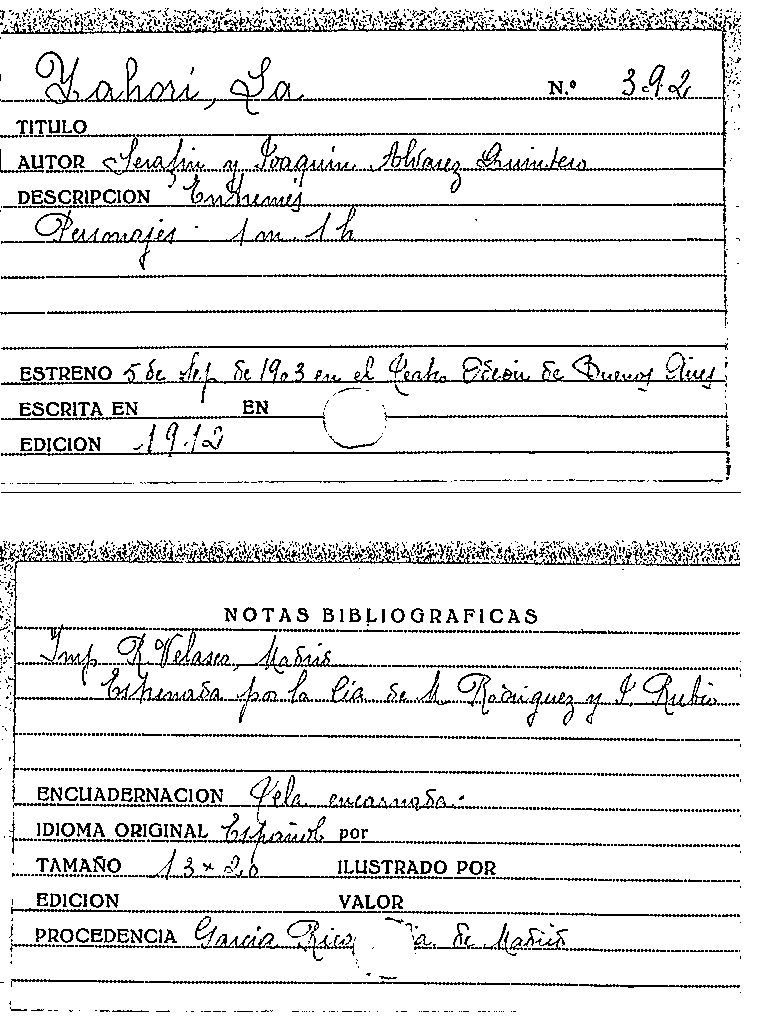 Zahorí, La N.º 392
TITULO
AUTOR Serafin y Joaquin Alvarez Quintero
DESCRIPCION Entremés
Personajes - 1 m. 1 h
ESTRENO 5 de Sep. de 1903 en el Teatro Odeon de Buenos Aires
ESCRITA EN EN
EDICION 1912
NOTAS BIBLIOGRAFICAS
Imp R. Velasco, Madrid
Estrenada por la Cía de M Rodriguez y J. Rubio
ENCUADERNACION Tela encarnada.
IDIOMA ORIGINAL Español por
TAMAÑO 13 x 20 ILUSTRADO POR
EDICION VALOR
PROCEDENCIA Garcia Rico a. de Madrid